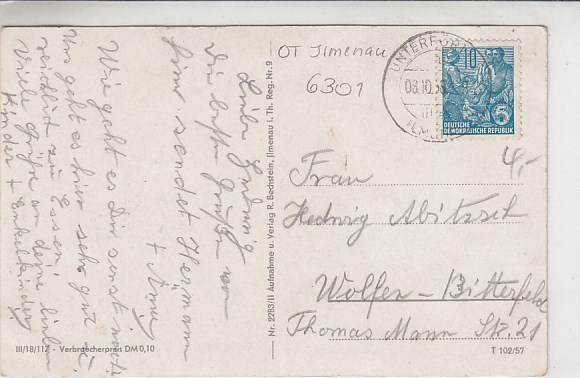 Liebe Hedwig
Die besten Grüße von
hier sendet Hermann
+ Anna
Wie geht es Dir sonst noch
Uns geht es hier sehr gut u.
reichlich zu Essen.
Viele Grüße an deine lieben
Kinder + Enkelkinder
OT Jlmenau
6301
UNTERPÖR
08.10.5
10
5
DEUTSCHE
DEMOKRATISCHE REPUBLIK
4,-
Frau
Hedwig Abitzsch
Wolfen-Bitterfeld
Thomas Mann Str. 21
Nr. 2283/11 Aufnahme u. Verlag R. Bechstein, Jlmenau i. Th. Reg. Nr. 9
III/18/117 - Verbraucherpreis DM 0,10
T 102/57